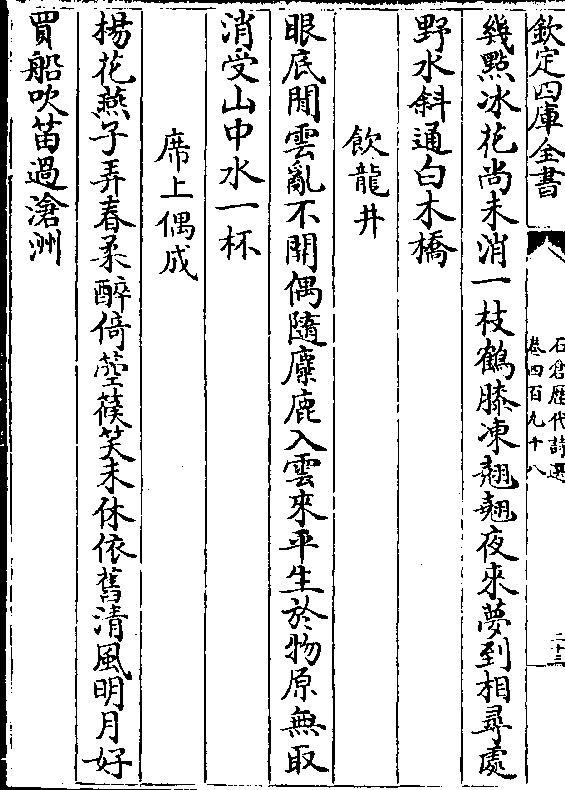 欽定四庫全書
石倉歴代詩選
卷四百九十八
二十三
幾點冰花尚未消一枝鶴膝凍翹翹夜來夢到相尋處
野水斜通白木橋
飲龍井
眼底閒雲亂不開偶隨麋鹿入雲來平生於物原無取
消受山中水一杯
席上偶成
楊花燕子弄春柔醉倚箜篌笑未休依舊清風明月好
買船吹笛過滄洲